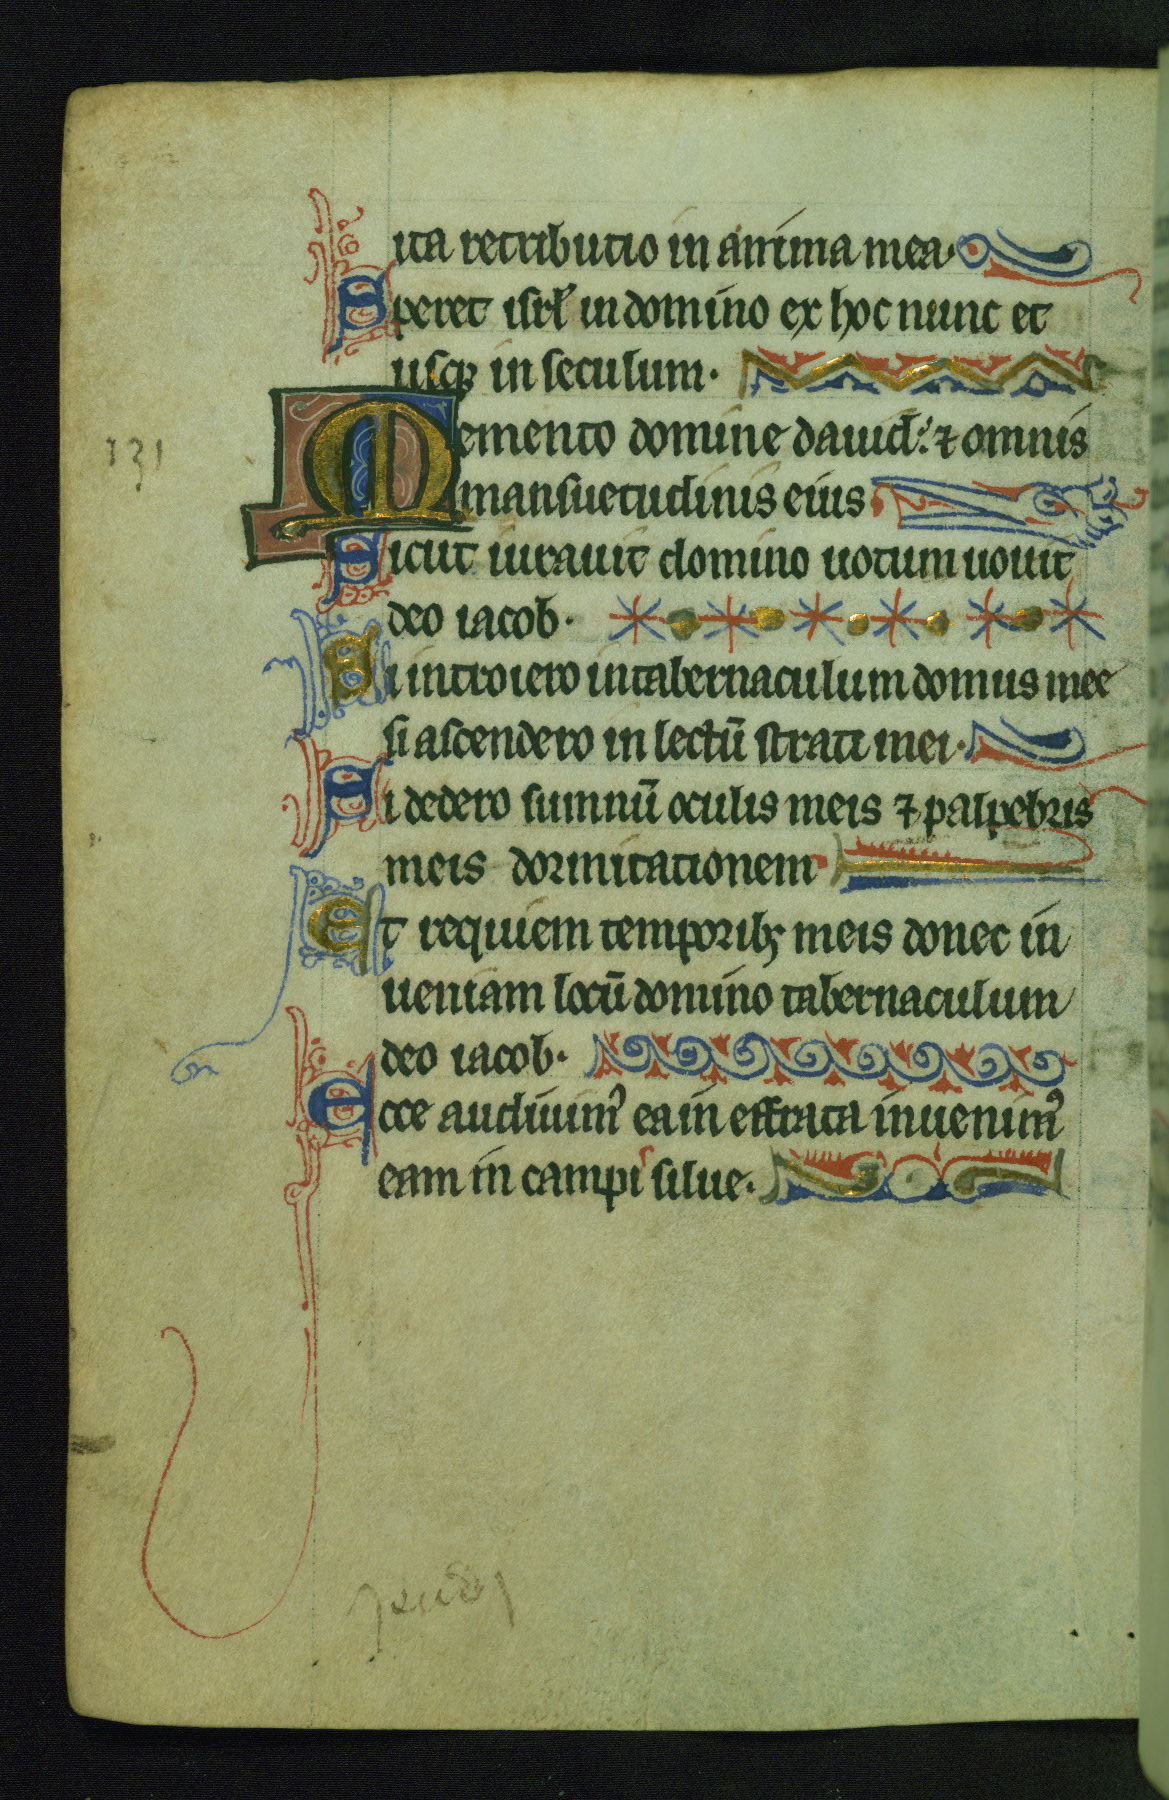 ita retributio in anima mea·
Speret isrł in domino ex hoc nunc et
usqꝫ in seculum·
131
Memento domine dauid: ⁊ omnis
mansuetudinis eius
Sicut iurauit domino uotum uouit
deo iacob·
Si introiero in tabernaculum domus mee
si ascendero in lectū strati mei·
Si dedero sumnū oculis meis ⁊ palpebris
meis dormitationem
Et requiem temporibꝫ meis donec in
ueniam locū domino tabernaculum
deo iacob·
Ecce audiuimꝰ ea in effrata inuenimꝰ
eam in campis silue·